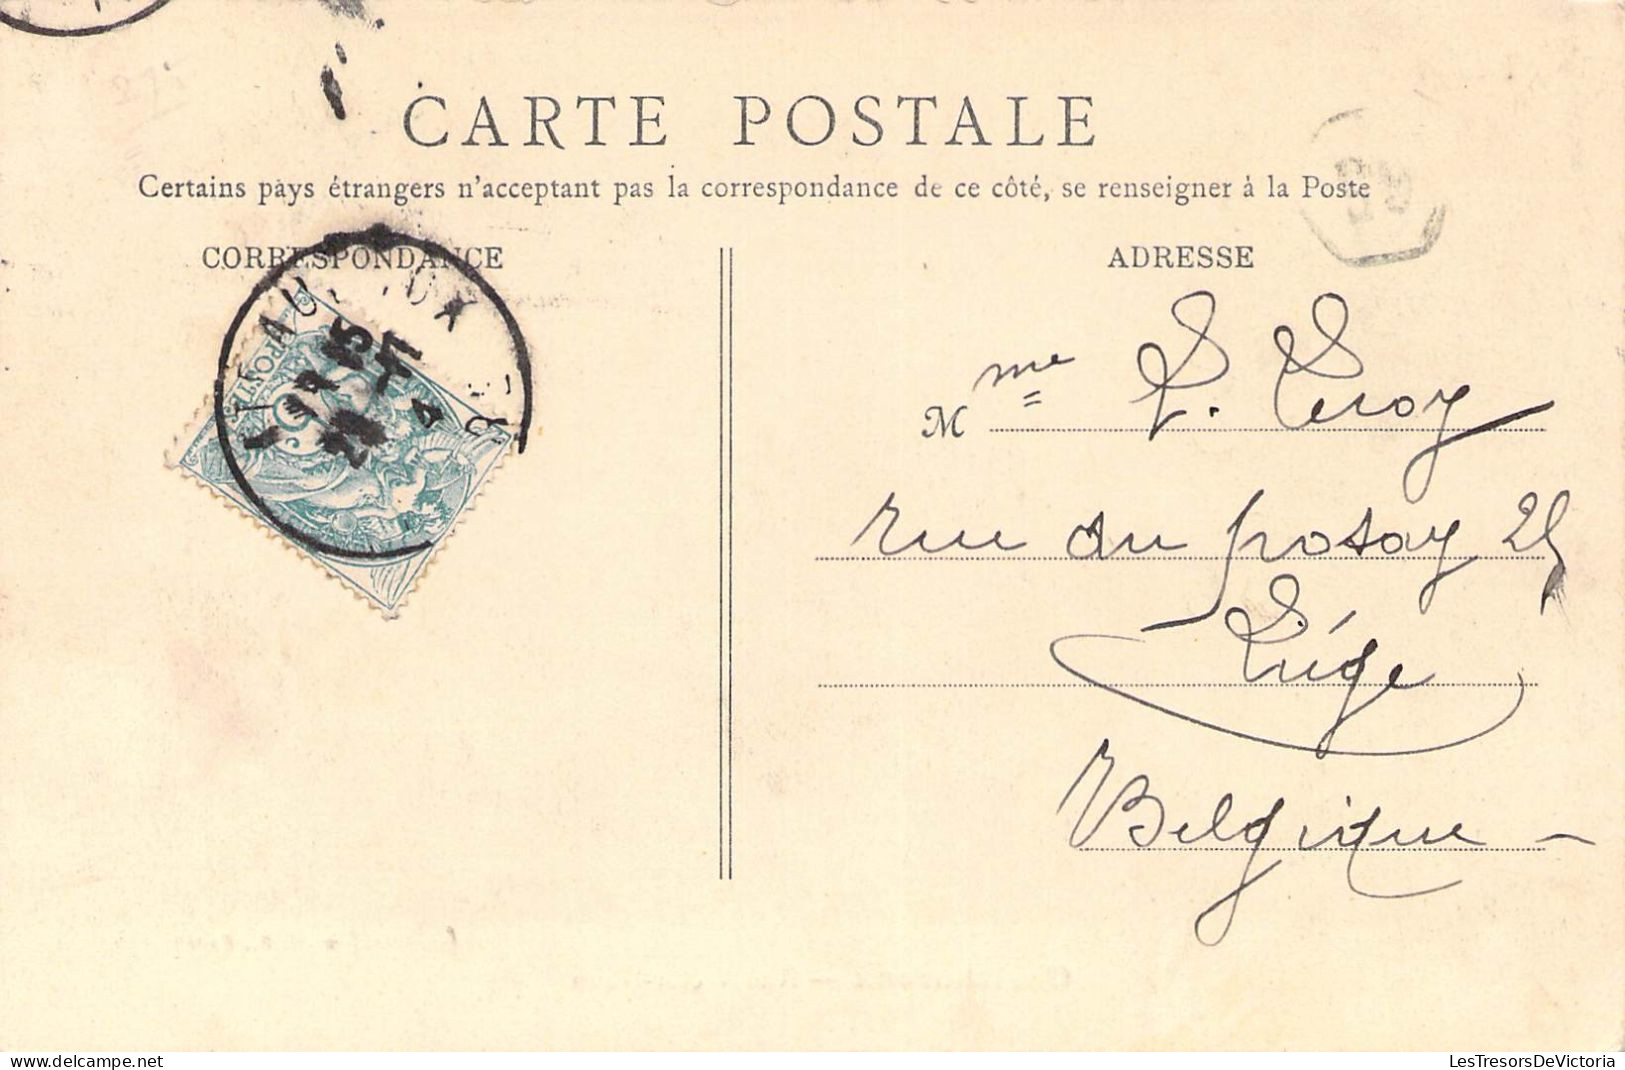 CARTE POSTALE
Certains pays étrangers n'acceptent pas la correspondance de ce côté, se renseigner à la Poste
CORRESPONDANCE
ADRESSE
Mme L. Leroy
rue du potay 25
Liége
Belgique
POSTES
5
15
LesTresorsDeVictoria